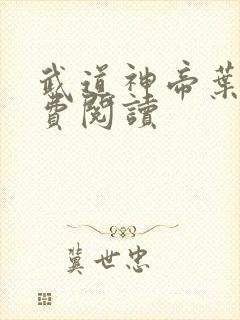 武道神帝葉
費閱讀
冀世忠